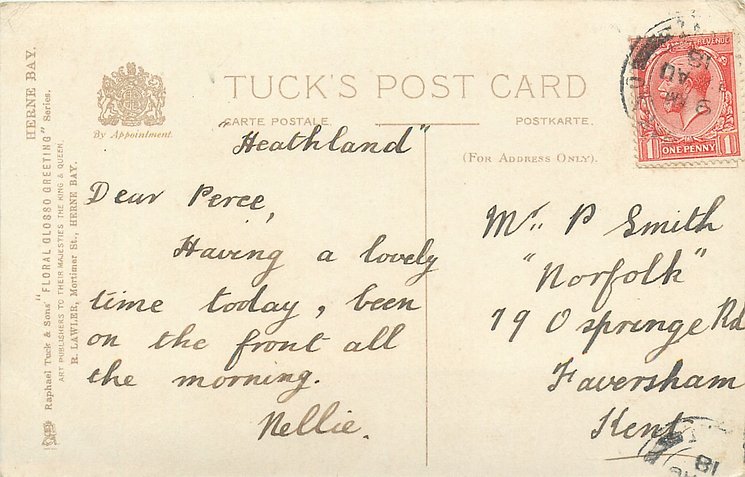 HERNE BAY.
Raphael Tuck & Sons' "FLORAL GLOSSO GREETING" Series.
ART PUBLISHERS TO THEIR MAJESTIES THE KING & QUEEN.
R. LAWLER, Mortimer St., HERNE BAY.
By Appointment.
TUCK'S POST CARD
CARTE POSTALE.
POSTKARTE.
(FOR ADDRESS ONLY).
REVENUE
ONE PENNY
1 1
AU
18
"Heathland"
Dear Perce,
Having a lovely
time today, been
on the front all
the morning.
Nellie.
Mr. P Smith
"Norfolk"
79 Ospringe Rd
Faversham
Kent
18